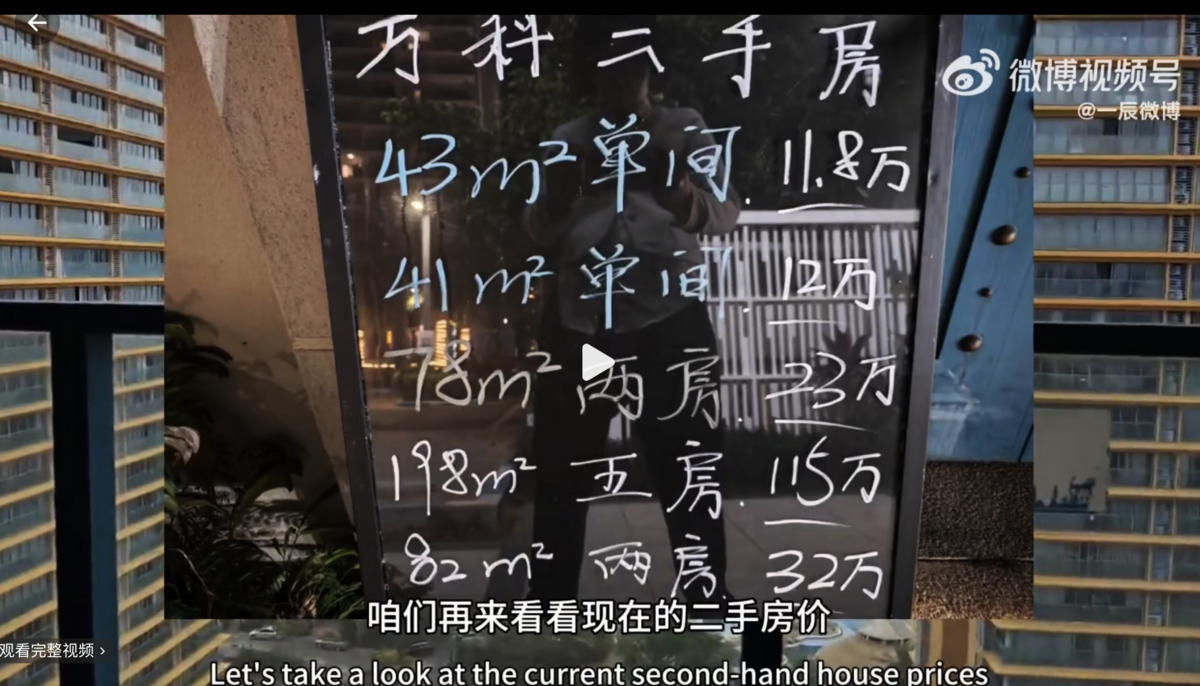 万科二手房
微博视频号
@一辰微博
43m² 单间. 11.8万
41m² 单间. 12万
78m² 两房. 23万
198m² 五房. 115万
82m² 两房. 32万
咱们再来看看现在的二手房价
观看完整视频 >
Let's take a look at the current second-hand house prices